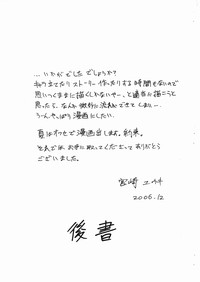 …いかがでしたでしょうか?
ネタ立てたりストーリー作ったりする時間もないので
思いつくままに描くしかないやー。と適当に描こうと
思ったら、なんか微妙に流れができてしまい…
うーん、やっぱり漫画にしたい。
夏はオフセで漫画出します。約束。
それではお手に取ってくださってありがとう
ございました。
宮崎
2006.12
後書